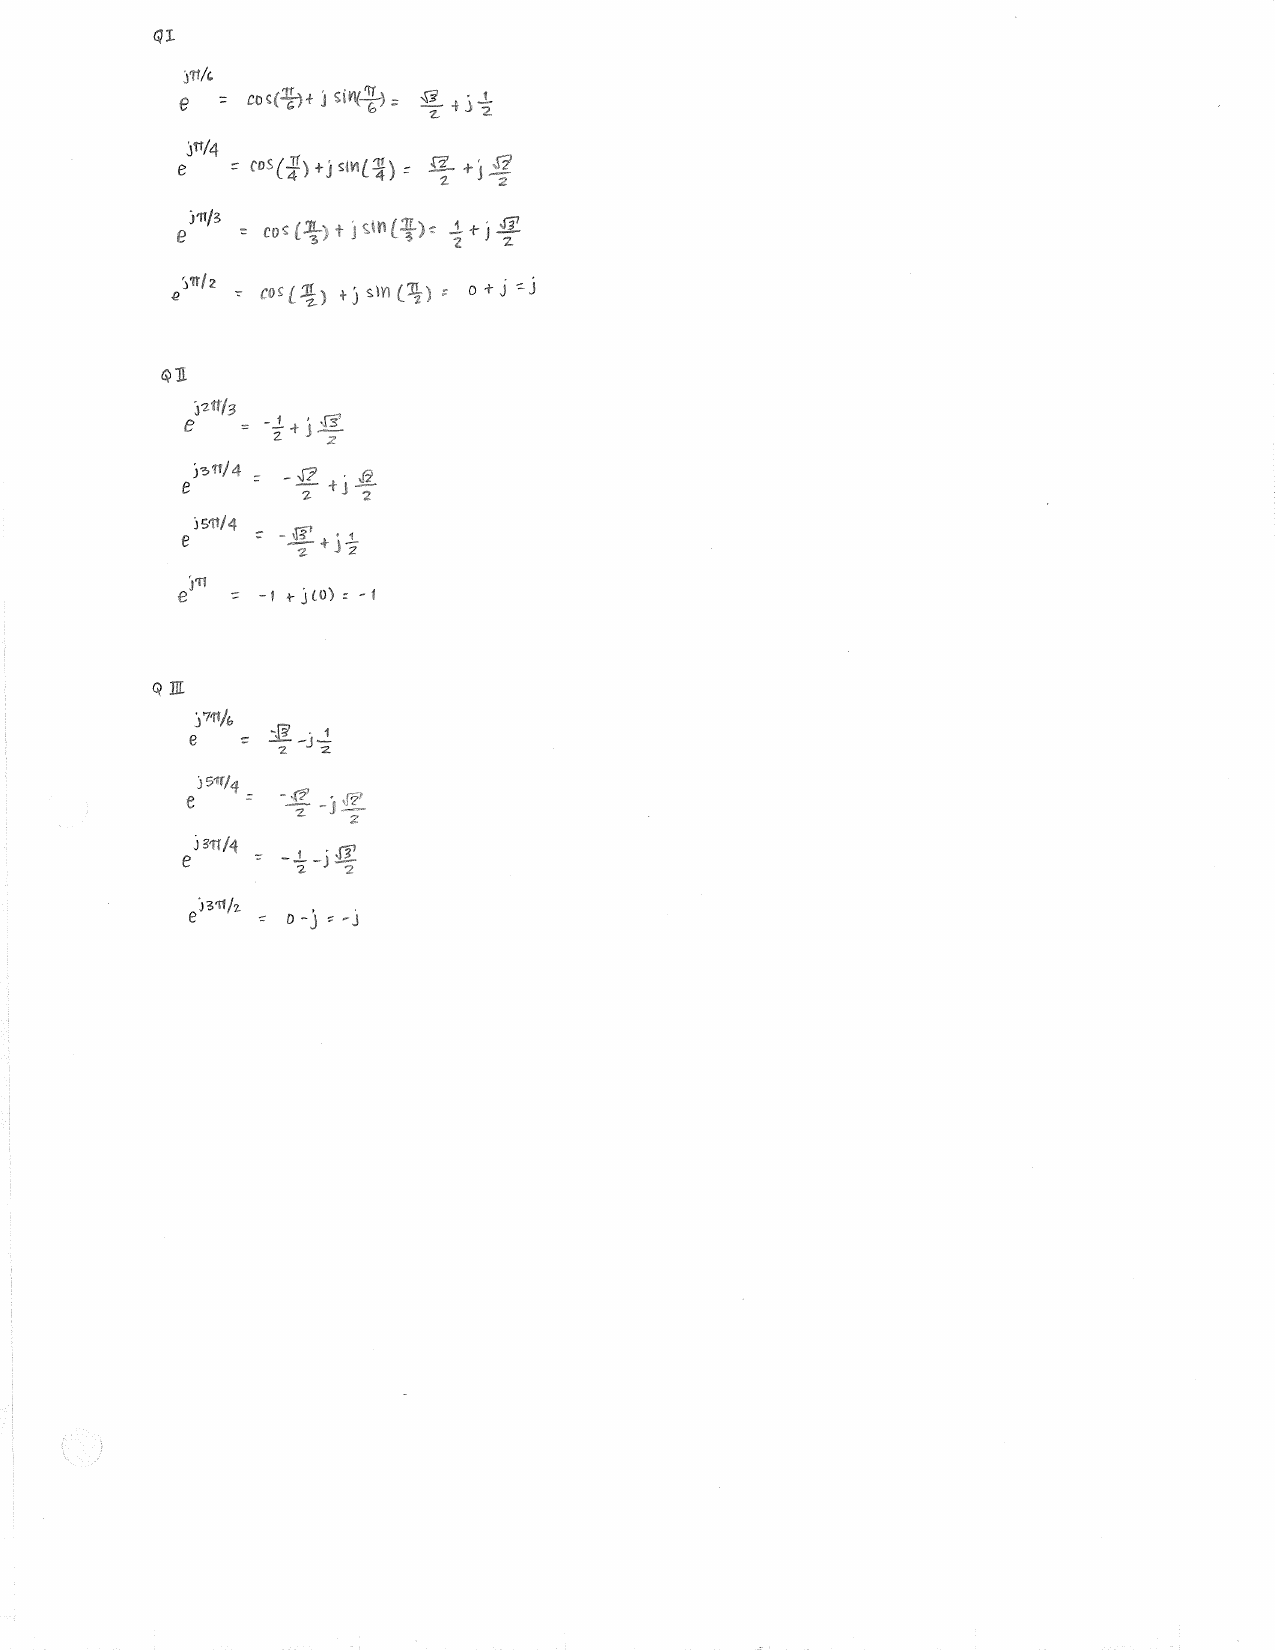 QI
e^{jπ/6} = cos(π/6) + j sin(π/6) = √3/2 + j 1/2
e^{jπ/4} = cos(π/4) + j sin(π/4) = √2/2 + j √2/2
e^{jπ/3} = cos(π/3) + j sin(π/3) = 1/2 + j √3/2
e^{jπ/2} = cos(π/2) + j sin(π/2) = 0 + j = j
QII
e^{j2π/3} = -1/2 + j √3/2
e^{j3π/4} = -√2/2 + j √2/2
e^{j5π/4} = -√3/2 + j 1/2
e^{jπ} = -1 + j(0) = -1
Q III
e^{j7π/6} = -√3/2 - j 1/2
e^{j5π/4} = -√2/2 - j √2/2
e^{j3π/4} = -1/2 - j √3/2
e^{j3π/2} = 0 - j = -j